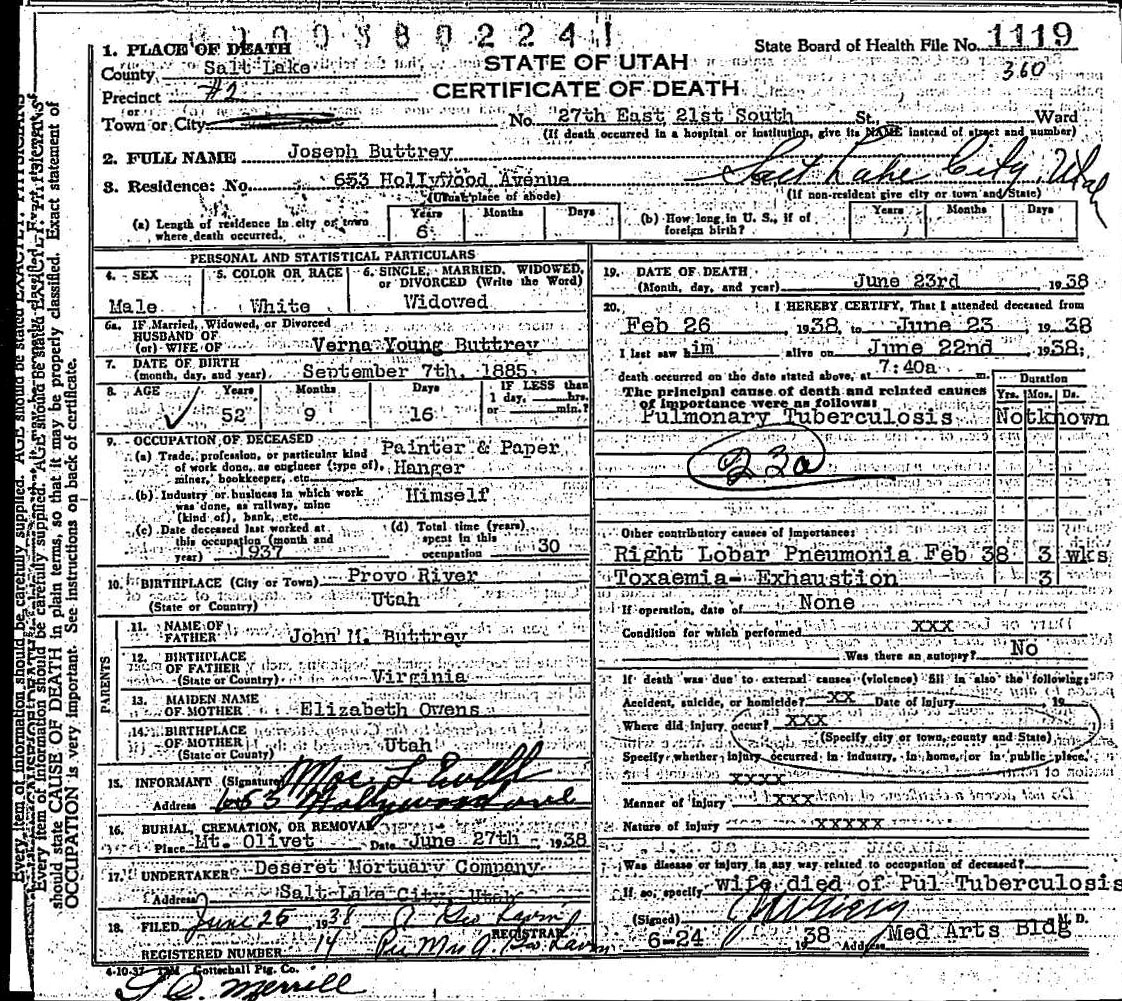 1003802241
State Board of Health File No. 1119
360
STATE OF UTAH
CERTIFICATE OF DEATH
1. PLACE OF DEATH
County Salt Lake
Precinct #2
(or)
Town or City
No. 27th East 21st South St., Ward
(If death occurred in a hospital or institution, give its NAME instead of street and number)
2. FULL NAME Joseph Buttrey
3. Residence: No. 653 Hollywood Avenue Salt Lake City, Utah
(Usual place of abode)
(If non-resident give city or town and State)
(a) Length of residence in city or town where death occurred.
Years 6 Months Days
(b) How long in U. S., if of foreign birth?
Years Months Days
PERSONAL AND STATISTICAL PARTICULARS
4. SEX Male
5. COLOR OR RACE White
6. SINGLE, MARRIED, WIDOWED, or DIVORCED (Write the Word) Widowed
6a. IF Married, Widowed, or Divorced
HUSBAND OF
(or) WIFE OF Verna Young Buttrey
7. DATE OF BIRTH
(month, day, and year) September 7th, 1885
8. AGE Years 52 Months 9 Days 16
IF LESS than 1 day, hrs. or min.?
9. OCCUPATION OF DECEASED
(a) Trade, profession, or particular kind of work done, as engineer (type of), miner, bookkeeper, etc. Painter & Paper Hanger
(b) Industry or business in which work was done, as railway, mine (kind of), bank, etc. Himself
(c) Date deceased last worked at this occupation (month and year) 1937
(d) Total time (years) spent in this occupation 30
10. BIRTHPLACE (City or Town) Provo River
(State or Country) Utah
PARENTS
11. NAME OF FATHER John M. Buttrey
12. BIRTHPLACE OF FATHER
(State or Country) Virginia
13. MAIDEN NAME OF MOTHER Elizabeth Owens
14. BIRTHPLACE OF MOTHER
(State or County) Utah
15. INFORMANT (Signature)
Address 653 Hollywood ave
16. BURIAL, CREMATION, OR REMOVAL
Place Mt. Olivet Date June 27th 1938
17. UNDERTAKER Deseret Mortuary Company
Address Salt Lake City, Utah
18. FILED June 26 1938
REGISTRAR
REGISTERED NUMBER 14
4-10-37 Gottschall Ptg. Co.
L. Q. Merrill
19. DATE OF DEATH
(Month, day, and year) June 23rd 1938
20. I HEREBY CERTIFY, That I attended deceased from
Feb 26, 1938, to June 23, 1938
I last saw him alive on June 22nd, 1938;
death occurred on the date stated above, at 7:40a m.
The principal cause of death and related causes of importance were as follows:
Duration
Yrs. Mos. Ds.
Pulmonary Tuberculosis Notknown
23a
Other contributory causes of importance:
Right Lobar Pneumonia Feb 38 3 wks
Toxaemia- Exhaustion 3
If operation, date of None
Condition for which performed xxx
Was there an autopsy? No
If death was due to external causes (violence) fill in also the following:
Accident, suicide, or homicide? xx Date of Injury 19
Where did injury occur? xxx
(Specify city or town, county and State)
Specify whether injury occurred in industry, in home, or in public place.
xxxx
Manner of injury xxx
Nature of injury xxxxx
Was disease or injury in any way related to occupation of deceased?
If so, specify wife died of Pul Tuberculosis
(Signed) M. D.
6-24 1938 Address Med Arts Bldg
Every item of information should be carefully supplied. AGE should be stated EXACTLY. PHYSICIANS
should state CAUSE OF DEATH in plain terms, so that it may be properly classified. Exact statement of
OCCUPATION is very important. See instructions on back of certificate.